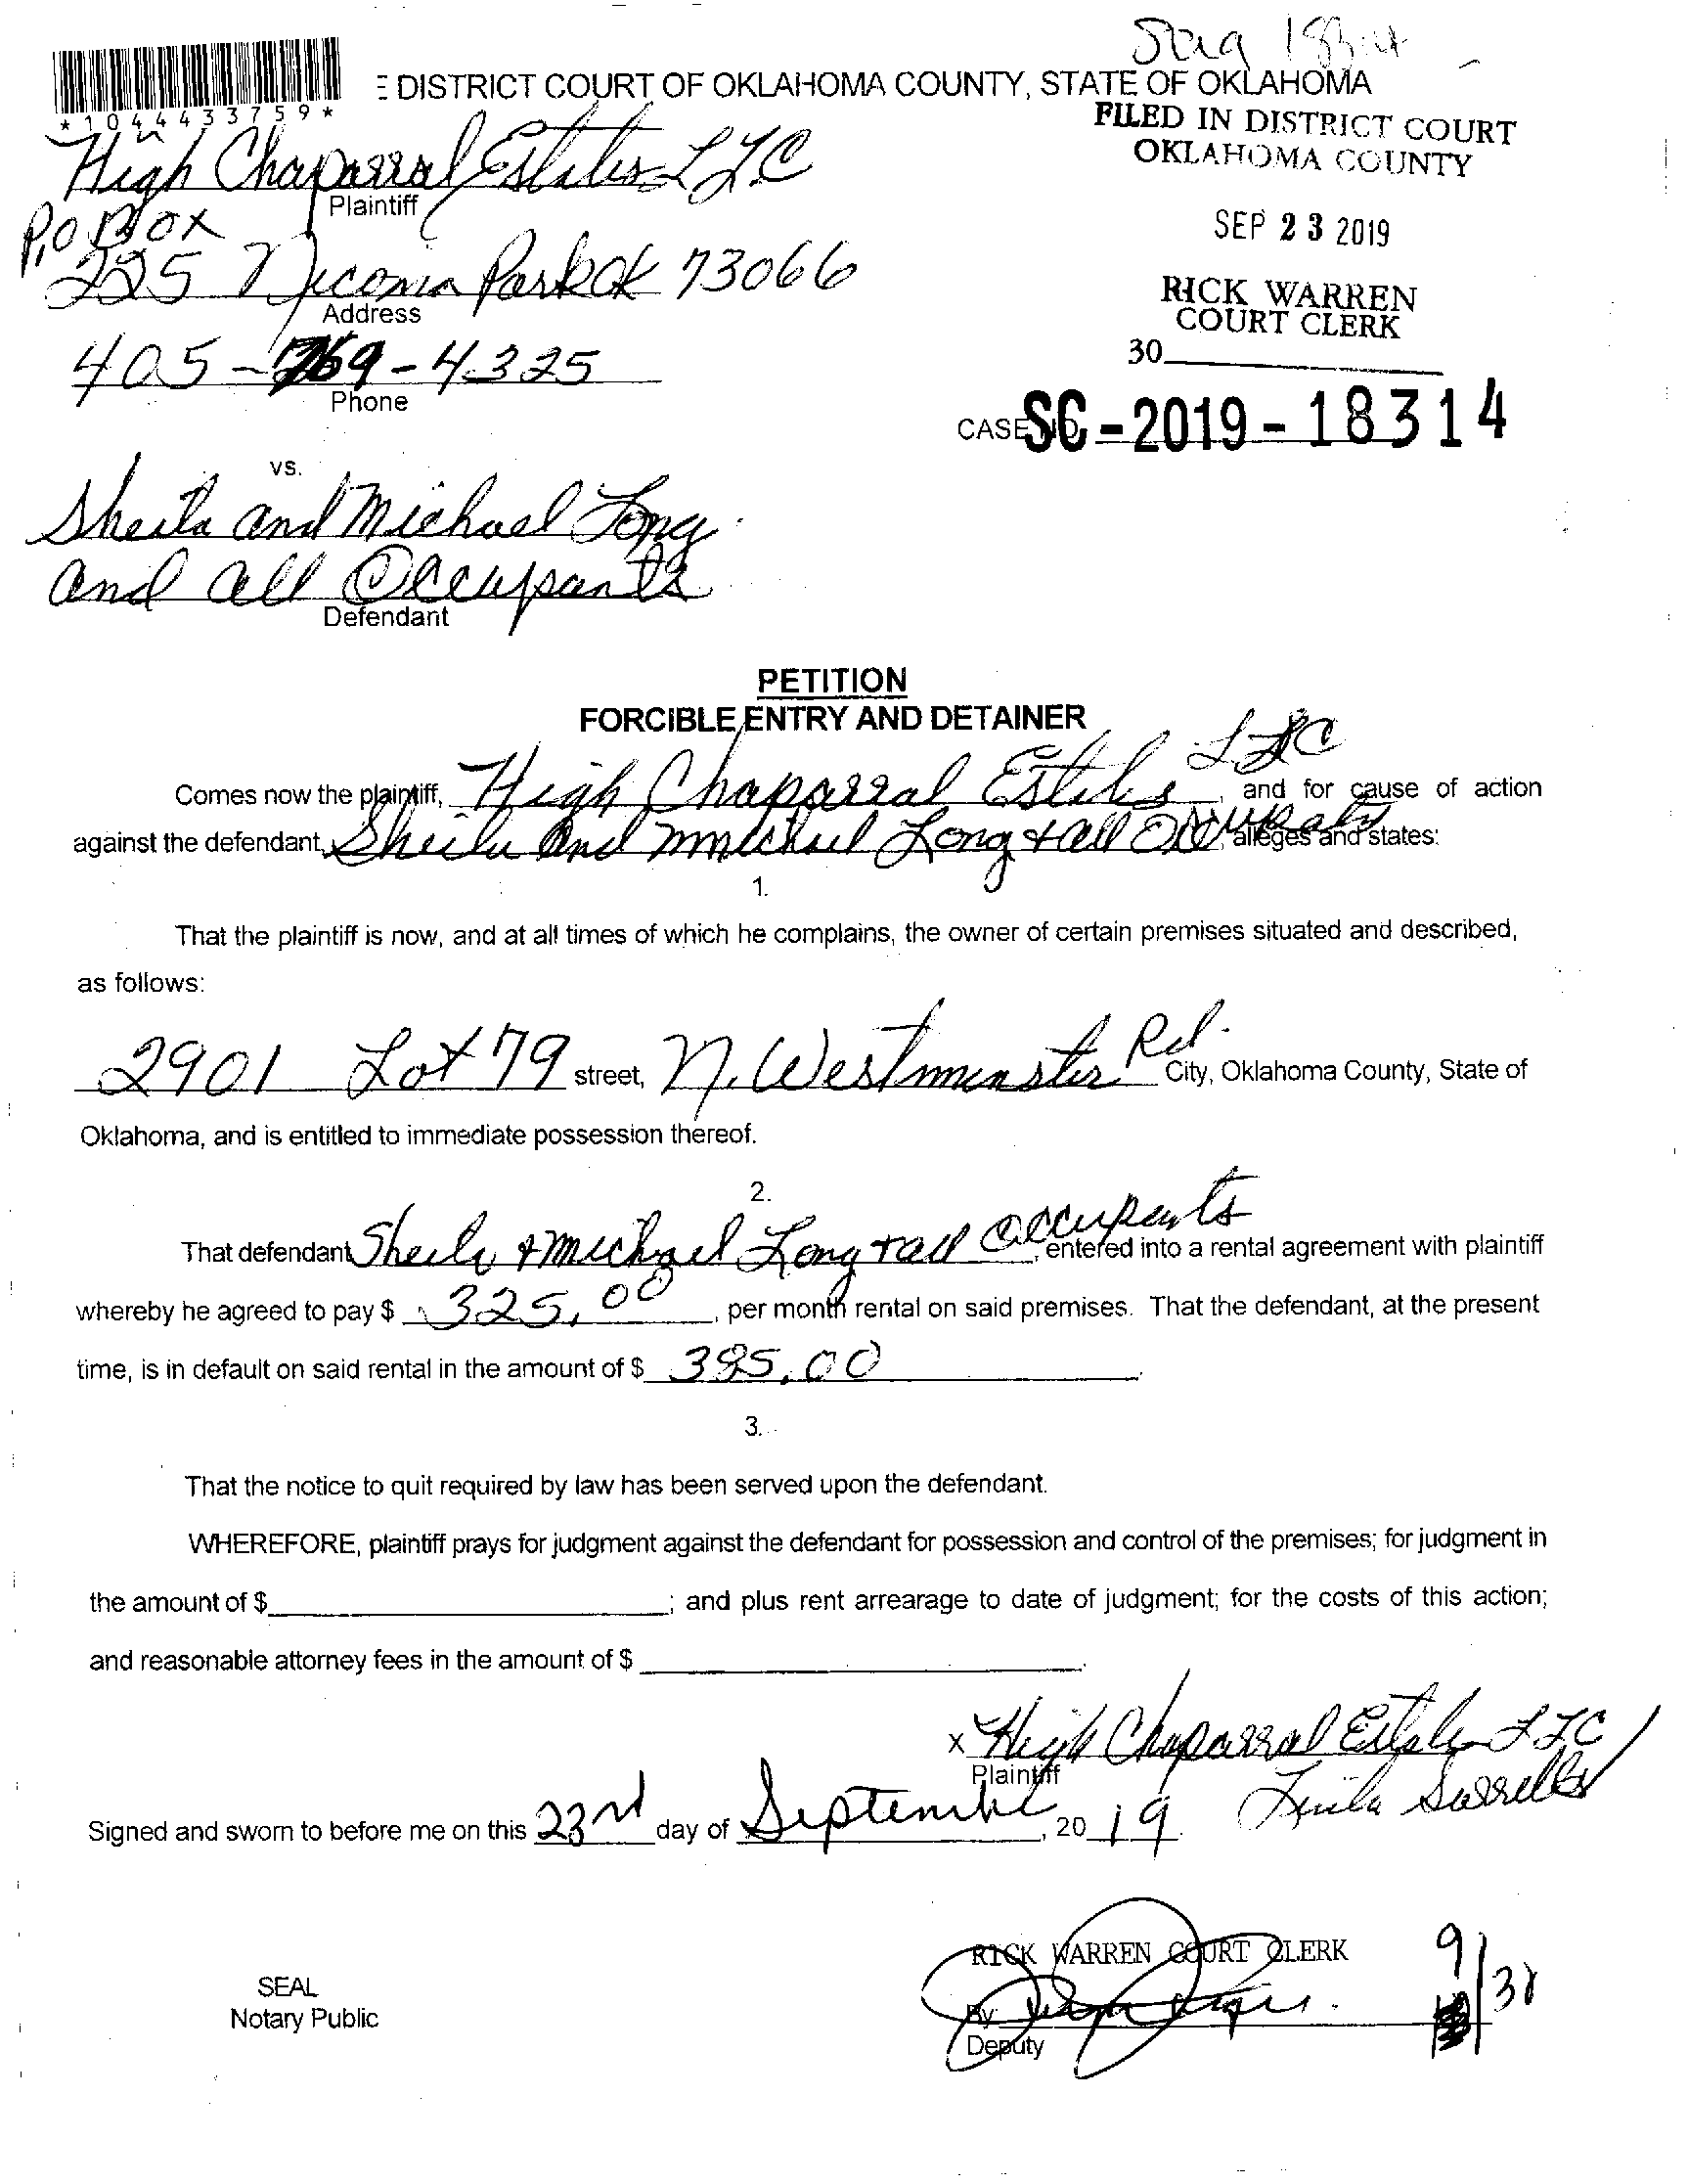 *1044433759*
E DISTRICT COURT OF OKLAHOMA COUNTY, STATE OF OKLAHOMA
FILED IN DISTRICT COURT
OKLAHOMA COUNTY
SEP 23 2019
RICK WARREN
COURT CLERK
30
High Chaparral Estates LLC
Plaintiff
P.O Box
225 Nicoma Park OK 73066
Address
405-769-4325
Phone
CASE NO. SC-2019-18314
vs.
Sheila and Michael Long
and all Occupants
Defendant
PETITION
FORCIBLE ENTRY AND DETAINER
Comes now the plaintiff, High Chaparral Estates LLC, and for cause of action
against the defendant, Sheila and Michael Long + all Occupants, alleges and states:
1.
That the plaintiff is now, and at all times of which he complains, the owner of certain premises situated and described,
as follows:
2901 Lot 79 street, N. Westminster Rd. City, Oklahoma County, State of
Oklahoma, and is entitled to immediate possession thereof.
2.
That defendant Sheila + Michael Long + all Occupants, entered into a rental agreement with plaintiff
whereby he agreed to pay $ 325.00, per month rental on said premises. That the defendant, at the present
time, is in default on said rental in the amount of $ 385.00.
3.
That the notice to quit required by law has been served upon the defendant.
WHEREFORE, plaintiff prays for judgment against the defendant for possession and control of the premises; for judgment in
the amount of $ ; and plus rent arrearage to date of judgment; for the costs of this action;
and reasonable attorney fees in the amount of $ .
x High Chaparral Estates LLC
Plaintiff
Signed and sworn to before me on this 23rd day of September, 2019.
RICK WARREN COURT CLERK
SEAL
Notary Public
By
Deputy